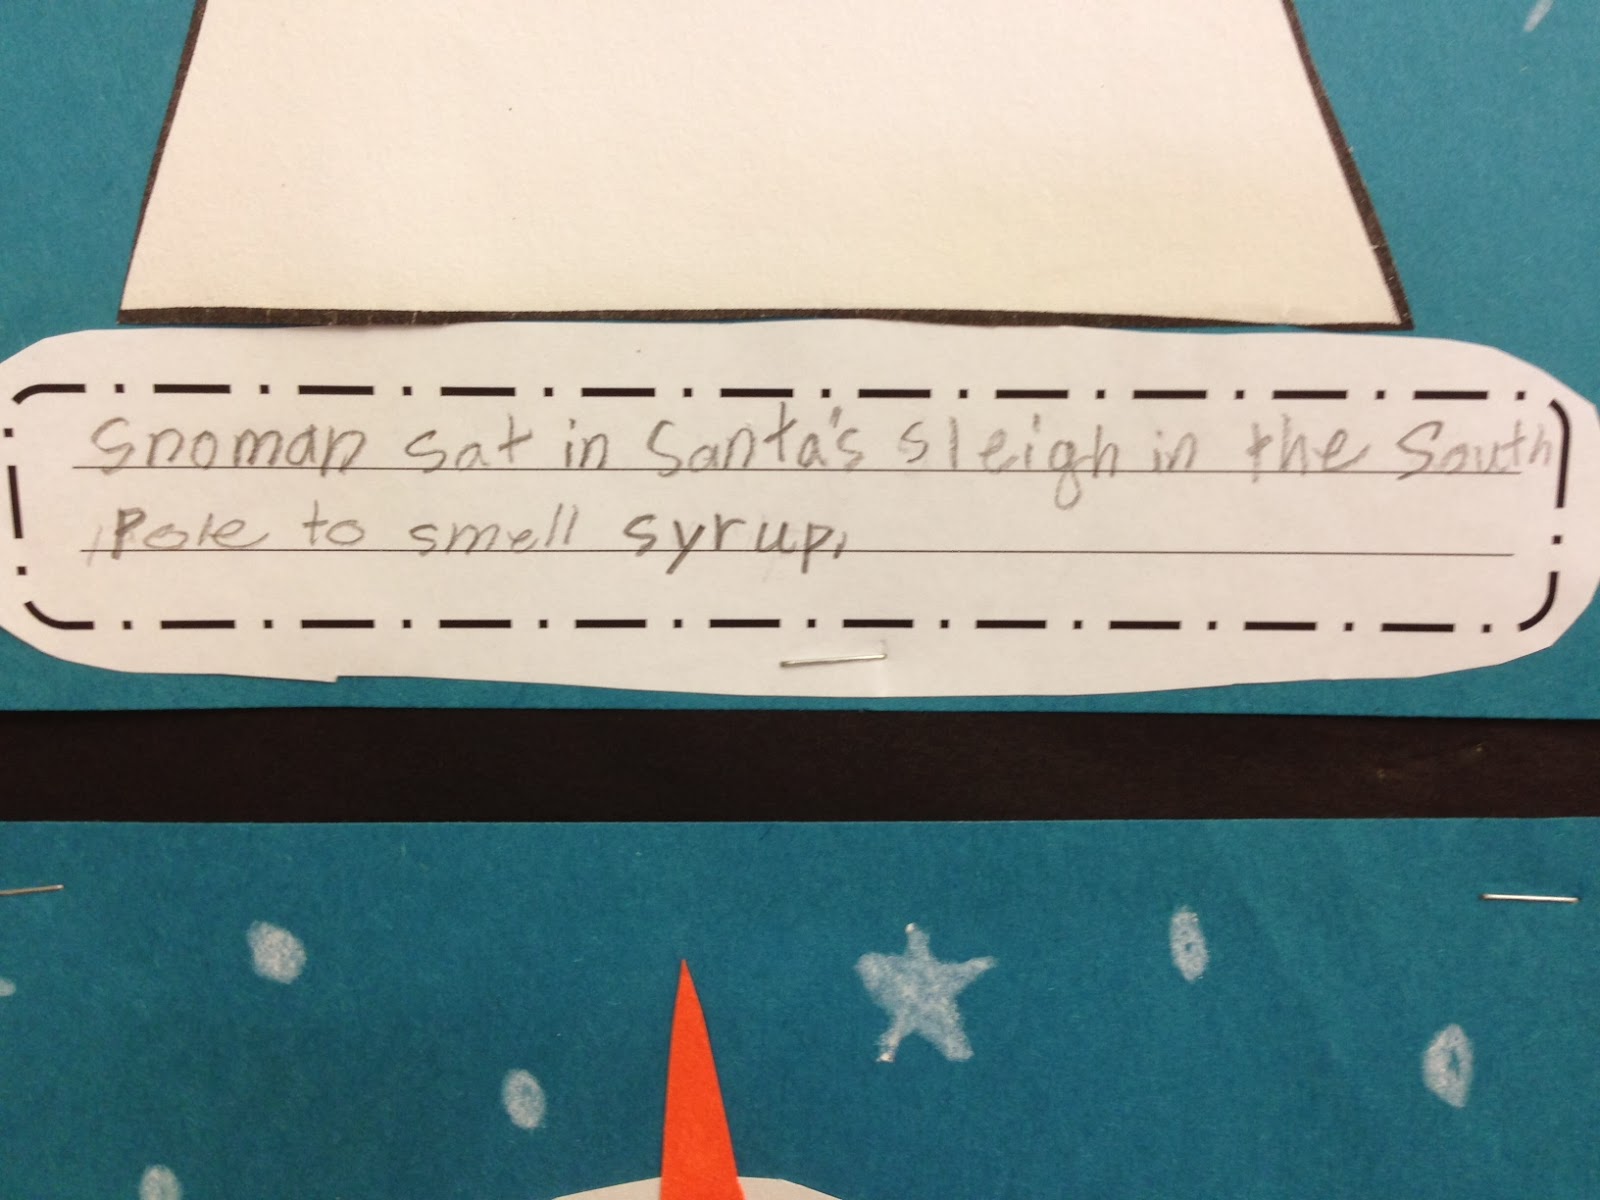 Snoman sat in Santa's sleigh in the South
Pole to smell syrup.